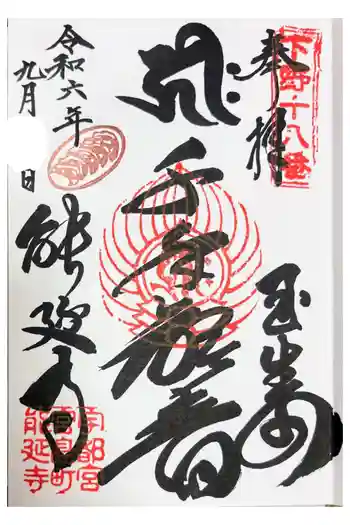 奉拝
下野・十八番
玉生山
千手観音
令和六年
九月 日
能延寺
宇都宮
宮島町
能延寺